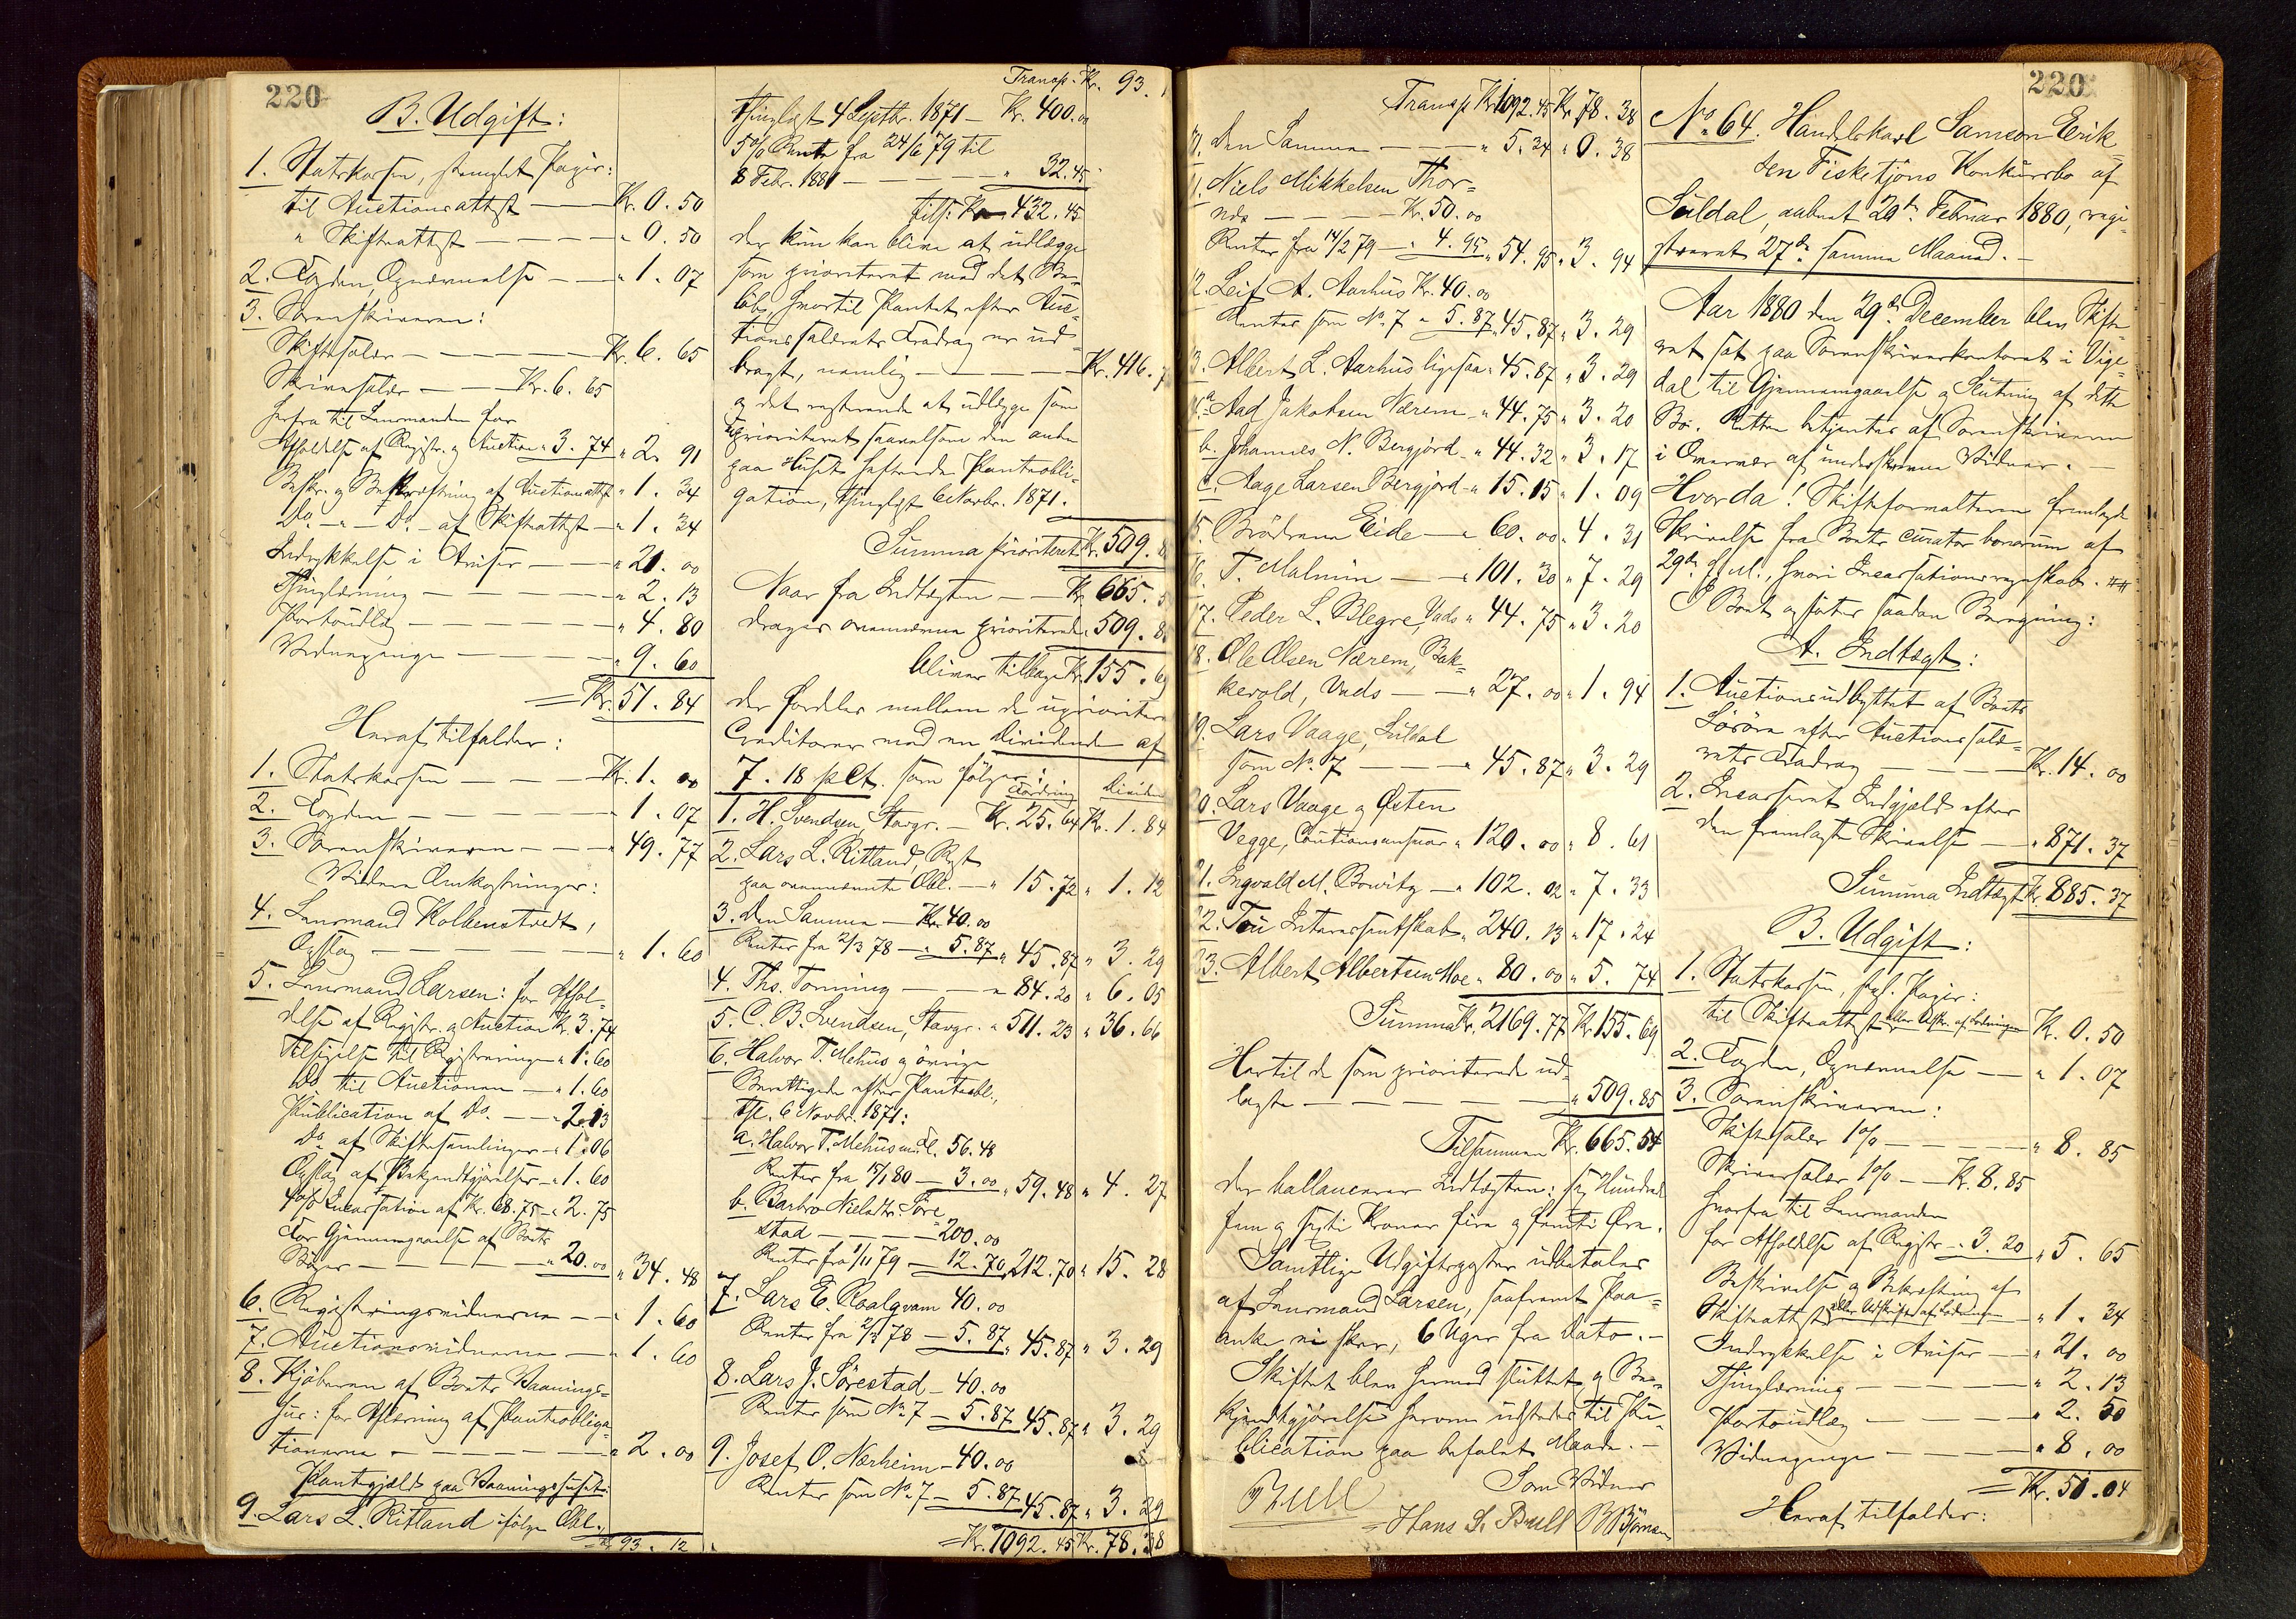 220
B. Udgift:
1. Statskassen, stemplet Papir:
til Auctionsattest — Kr. 0.50
" Skifteattest — — — — " 0.50
2. Fogden, Opnævnelse — — " 1.07
3. Sorenskriveren:
Skiftesalær — — — — — Kr. 6.65
Skriversalær — — Kr. 6.65
herfra til Lensmanden for
Afholdelse af Registr. og Auction " 3.74 " 2.91
Beskr. og Bekræftning af Auctionsattest " 1.34
Do. — " — Do. — af Skifteattest — " 1.34
Indrykkelse i Aviser — — " 21.00
Thinglæsning — — — — — " 2.13
Portoudlæg — — — — — " 4.80
Vidnepenge — — — — " 9.60
= Kr. 51.84
Heraf tilfalder:
1. Statskassen — — — Kr. 1.00
2. Fogden — — — — — " 1.07
3. Sorenskriveren — — — " 49.77
Videre Omkostninger:
4. Lensmand Kolbenstvedt,
Opslag — — — — — " 1.60
5. Lensmand Larsen: for Afhol-
delse af Registr. og Auction Kr. 3.74
Tilsigelse til Registreringen " 1.60
Do til Auctionen — " 1.60
Publication af Do. — — " 2.13
Do. af Skiftesamlinger — " 1.06
Opslag af Bekjendtgjørelser — " 1.60
4% Incassation af Kr. 68.75 — " 2.75
For Gjennemgaaelse af Boets
Bøger — — — — — " 20.00 " 34.48
6. Registreringsvidnerne — — " 1.60
7. Auctionsvidnerne — — " 1.60
8. Kjøberen af Boets Vaanings-
hus: for Aflæsning af Panteobliga-
tionerne — — — — — " 2.00
Pantegjæld paa Vaaningshuset:
9. Lars L. Ritland ifølge Obl.,
Kr. 93.12
Transp. Kr. 93.
thinglæst 4 Septbr. 1871 — Kr. 400.00
5% Rente fra 24/6 79 til
8 Febr. 1881 — — — — — " 32.45
tils: Kr. 432.45
der kun kan blive at udlægge
som prioriteret med det Be-
løb, hvortil Pantet efter Auc-
tionssalærets Fradrag er ud-
bragt, nemlig — — — — Kr. 416.
og det resterende at udlægge som
uprioriteret saavelsom den anden
paa Huset heftende Panteobli-
gation, thinglæst 6 Novbr. 1871.
Summa prioriteret Kr. 509.
Naar fra Indtægten — — Kr. 665.
drages ovennævnte prioriterede " 509.
bliver tilbage Kr. 155.
der fordeles mellem de uprioriterte
Creditorer med en Dividende af
7.18 pCt. som følger:
Fordring Dividende
1. H. Svendsen, Stavgr. — Kr. 25.64 Kr. 1.84
2. Lars L. Ritland, Rest
paa ovennævnte Obl. — " 15.72 " 1.12
3. Den Samme — Kr. 40.00
Renter fra 2/3 78 — " 5.87 " 45.87 " 3.29
4. Ths. Torning — — — " 84.20 " 6.05
5. C. B. Svendsen, Stavgr. " 511.23 " 36.66
6. Halvor T. Mehus og øvrige
Berettigede efter Panteobl.,
thl. 6 Novbr. 1871:
a. Halvor T. Mehus m. fl. 56.48
Renter fra 15/1 80 — 3.00 " 59.48 " 4.27
b. Barbro Nielsdtr. Søre-
stad — — — — 200.00
Renter fra 1/11 79 — 12.70 212.70 " 15.28
7. Lars E. Roalqvam 40.00
Renter fra 2/3 78 — 5.87 " 45.87 " 3.29
8. Lars J. Sørestad — 40.00
Renter som No. 7 — 5.87 45.87 " 3.29
9. Josef O. Nærheim — 40.00
Renter som No. 7 — 5.87 45.87 " 3.29
= Kr. 1092.45 Kr. 78.38
220
Transp. Kr. 1092.45 Kr. 78.38
Den Samme — — — " 5.34 " 0.38
Niels Mikkelsen Thor-
— — — — Kr. 50.00
Renter fra 14/2 79 — " 4.95 " 54.95 " 3.94
2. Leif A. Aarhus Kr. 40.00
Renter som No. 7 " 5.87 " 45.87 " 3.29
3. Albert L. Aarhus ligesaa " 45.87 " 3.29
a. Aad Jakobsen Nærem " 44.75 " 3.20
b. Johannes N. Bergjord " 44.32 " 3.17
c. Aage Larsen Bergjord " 15.15 " 1.09
5. Brødrene Eide — " 60.00 " 4.31
6. T. Malmin — — " 101.30 " 7.29
7. Peder L. Blegre, Vads " 44.75 " 3.20
8. Ole Olsen Nærem, Bak-
kevold, Vads — — " 27.00 " 1.94
9. Lars Vaage, Suldal
som No. 7 — — — " 45.87 " 3.29
20. Lars Vaage og Østen
Vegge, Cautionsansvar " 120.00 " 8.61
21. Ingvald M. Bowitz — " 102.02 " 7.33
22. Tou Interessentskab " 240.13 " 17.24
23. Albert Albertsen Moe " 80.00 " 5.74
Summa Kr. 2169.77 Kr. 155.69
Hertil de som prioriterede ud-
lagte — — — — — — " 509.85
Tilsammen Kr. 665.54
der ballancerer Indtægten: sex Hundrede
fem og sexti Kroner fire og femti Øre.
Samtlige Udgiftsposter udbetales
af Lensmand Larsen, saafremt Paa-
anke ei sker, 6 Uger fra Dato. —
Skiftet blev hermed sluttet og Be-
kjendtgjørelse herom udstedes til Pu-
blication paa befalet Maade. —
Bull
Som Vidner
Hans S. Bull B Bjørnsen
220
No. 64. Handelskarl Samson Erik-
sen Fisketjøns Konkursbo af
Suldal, aabnet 20de Februar 1880, regi-
streret 27de samme Maaned. —
Aar 1880 den 29de December blev Skifte-
ret sat paa Sorenskriverkontoret i Vige-
dal til Gjennemgaaelse og Slutning af dette
Bo. Retten betjentes af Sorenskriveren
i Overvær af underskrevne Vidner. —
Hvorda! Skifteforvalteren fremlagde
Skrivelse fra Boets curator bonorum af
29de f. M., hvori Incassationsregnskab.
Boet opsattes saadan Beregning:
A. Indtægt:
1. Auctionsudbyttet af Boets
Løsøre efter Auctionssalæ-
rets Fradrag — — — — Kr. 14.00
2. Incasseret Indgjæld efter
den fremlagte Skrivelse — " 871.37
Summa Indtægt Kr. 885.37
B. Udgift:
1. Statskassen, stpl. Papir:
til Skifteattest eller Udskr. af Lodningen Kr. 0.50
2. Fogden, Opnævnelse — — " 1.07
3. Sorenskriveren:
Skiftesalær 1% — — — — — " 8.85
Skriversalær 1% — — Kr. 8.85
hvorfra til Lensmanden
for Afholdelse af Registr — " 3.20 " 5.65
Beskrivelse og Bekræftning af
Skifteattest eller Udskrift af Lodningen — " 1.34
Indrykkelse i Aviser — — " 21.00
Thinglæsning — — — — — " 2.13
Portoudlæg — — — — — " 2.50
Vidnepenge — — — — " 8.00
= Kr. 51.04
Heraf tilfalder: